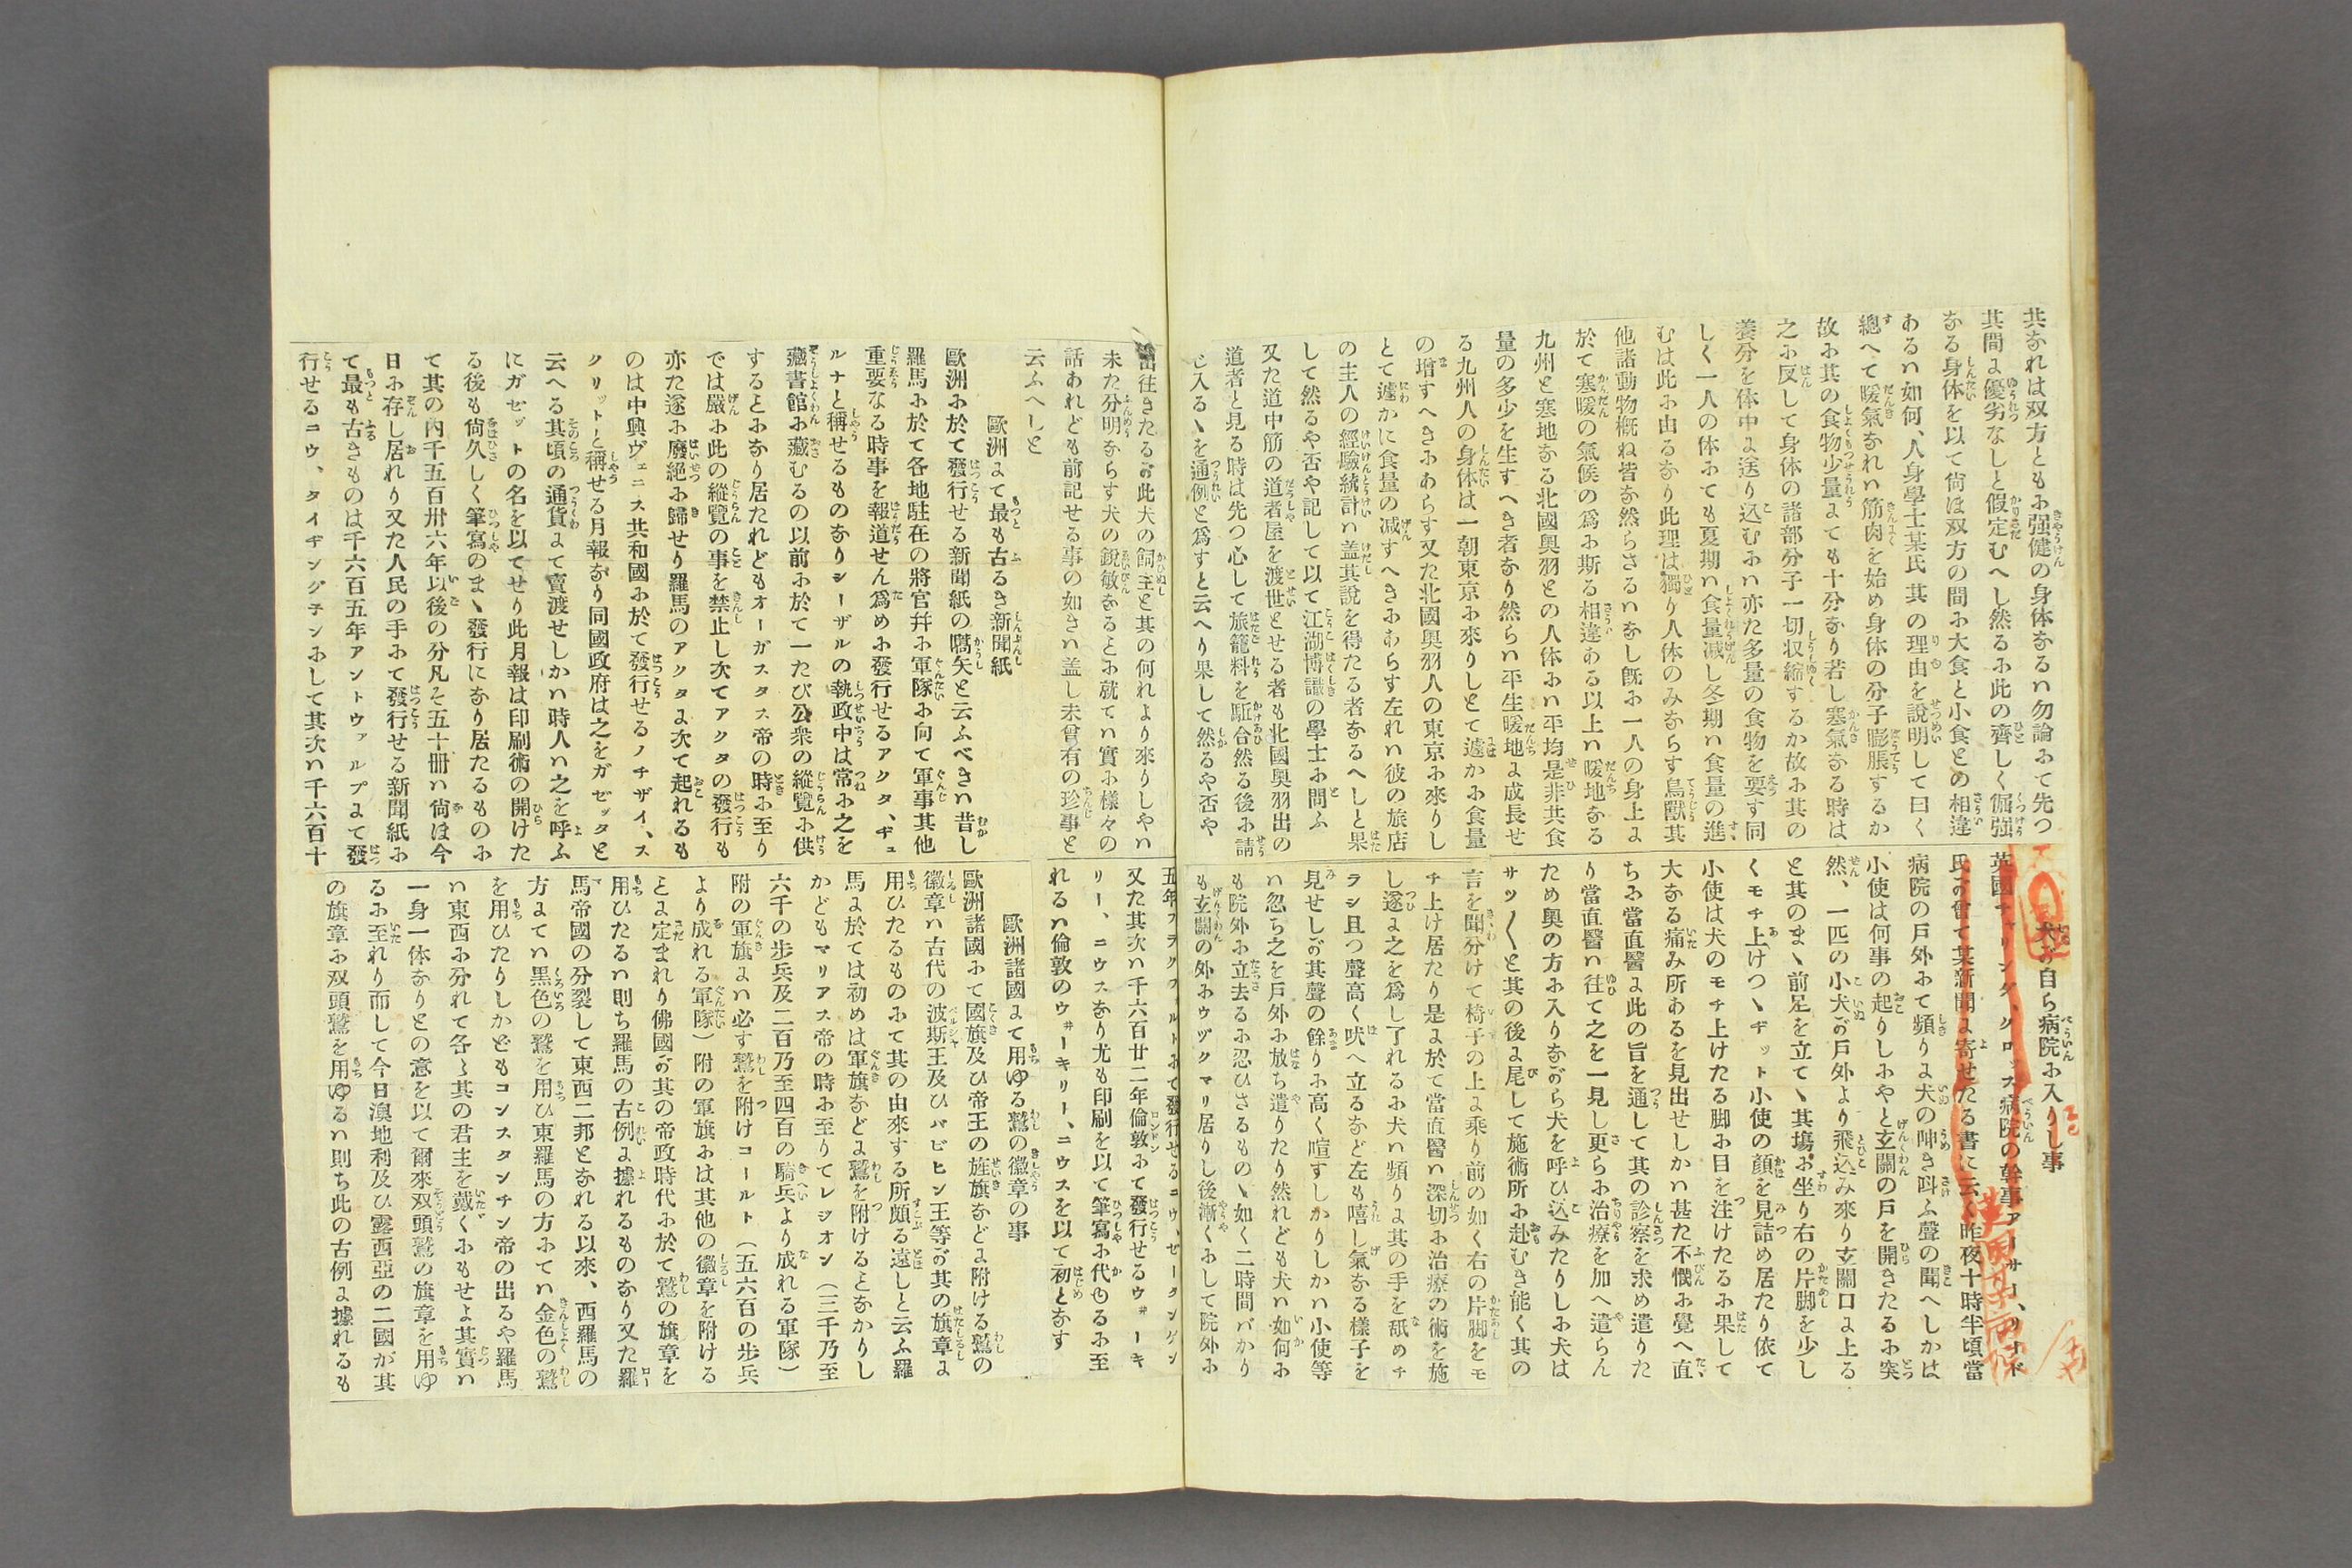 共なれは双方ともに强健の身体なるハ勿論にて先つ
其間に優劣なしと假定むへし然るに此の齊しく倔强
なる身体を以て尙ほ双方の間に大食と小食との相違
あるハ如何、人身學士某氏其の理由を說明して曰く
總へて暖氣なれハ筋肉を始め身体の分子膨脹するか
故に其の食物少量にても十分なり若し寒氣なる時は
之に反して身体の諸部分子一切収縮するか故に其の
養分を体中に送り込むにハ亦た多量の食物を要す同
しく一人の体にても夏期ハ食量减し冬期ハ食量の進
むは此に由るなり此理は獨り人体のみならす鳥獸其
他諸動物槪ね皆な然らさるハなし旣に一人の身上に
於て寒暖の氣候の爲に斯る相違ある以上ハ暖地なる
九州と寒地なる北國奥羽との人体にハ平均是非共食
量の多少を生すへき者なり然らハ平生暖地に成長せ
る九州人の身体は一朝東京に來りしとて遽かに食量
の增すへきにあらす又た北國奥羽人の東京に來りし
とて遽かに食量の减すへきにあらす左れハ彼の旅店
の主人の經驗統計ハ盖其說を得たる者なるへしと果
して然るや否や記して以て江湖博識の學士に問ふ
又た道中筋の道者屋を渡世とせる者も北國奥羽出の
道者と見る時は先つ心して旅籠料を駈合然る後に請
じ入るゝを通例と爲すと云へり果して然るや否や
犬が自ら病院に入りし事
英國チャリング、クロッス病院の幹事アーサー、リード
氏が曾て某新聞に寄せたる書に云く昨夜十時半頃當
病院の戸外にて頻りに犬の呻き叫ふ聲の聞へしかは
小使は何事の起りしにやと玄關の戸を開きたるに突
然、一匹の小犬が戸外より飛込み來り玄關口に上る
と其のまゝ前足を立てゝ其塲に坐り右の片脚を少し
くモチ上けつゝヂット小使の顏を見詰め居たり依て
小使は犬のモチ上けたる脚に目を注けたるに果して
大なる痛み所あるを見出せしかハ甚た不憫に覺へ直
ちに當直醫に此の旨を通して其の診察を求め遣りた
り當直醫ハ往て之を一見し更らに治療を加へ遣らん
ため奥の方に入りながら犬を呼ひ込みたりしに犬は
サッ〱と其の後に尾して施術所に赴むき能く其の
言を聞分けて椅子の上に乘り前の如く右の片脚をモ
チ上け居たり是に於て當直醫ハ深切に治療の術を施
し遂に之を爲し了れるに犬ハ頻りに其の手を舐めチ
ラシ且つ聲高く吠へ立るなど左も嘻し氣なる樣子を
見せしが其聲の餘りに高く喧すしかりしかハ小使等
ハ忽ち之を戸外に放ち遣りたり然れども犬ハ如何に
も院外に立去るに忍ひさるものゝ如く二時間バかり
も玄關の外にウヅクマリ居りし後漸くにして院外に
當往きたるが此犬の飼主と其の何れより來りしやハ
未た分明ならす犬の銳敏なるとに就てハ實に樣々の
話あれども前記せる事の如きハ盖し未曾有の珍事と
云ふへしと
歐洲にて最も古るき新聞紙
歐洲に於て發行せる新聞紙の嚆矢と云ふべきハ昔し
羅馬に於て各地駐在の將官幷に軍隊に向て軍事其他
重要なる時事を報道せん爲めに發行せるアクタ、ヂュ
ルナと稱せるものなりシーザルの執政中は常に之を
藏書館に藏むるの以前に於て一たび公衆の縱覽に供
するとになり居たれどもオーガスタス帝の時に至り
では嚴に此の縱覽の事を禁止し次てアクタの發行も
亦た遂に廢絕に歸せり羅馬のアクタに次て起れるも
のは中興ヴェニス共和國に於て發行せるノチザイ、ス
クリットと稱せる月報なり同國政府は之をガゼッタと
云へる其頃の通貨にて賣渡せしかハ時人ハ之を呼ふ
にガゼットの名を以てせり此月報は印刷術の開けた
る後も尙久しく筆寫のまゝ發行になり居たるものに
て其の內千五百卅六年以後の分凡そ五十冊ハ尙ほ今
日に存し居れり又た人民の手にて發行せる新聞紙に
て最も古きものは千六百五年アントウァルプにて發
行せるニウ、タイヂングヂンにして其次ハ千六百十
五年フラクフルトにて發行せるニウ、ゼータンゲン
又た其次ハ千六百廿二年倫敦にて發行せるウヰーキ
リー、ニウスなり尤も印刷を以て筆寫に代ゆるに至
れるハ倫敦のウヰーキリー、ニウスを以て初となす
歐洲諸國にて用ゆる鷲の徽章の事
歐洲諸國にて國旗及ひ帝王の旌旗などに附ける鷲の
徽章ハ古代の波斯王及ひバビヒン王等が其の旗章に
用ひたるものにて其の由來する所頗る遠しと云ふ羅
馬に於ては初めは軍旗などに鷲を附けるとなかりし
かどもマリアス帝の時に至りてレジオン（三千乃至
六千の步兵及二百乃至四百の騎兵より成れる軍隊）
附の軍旗にハ必す鷲を附けコールト（五六百の步兵
より成れる軍隊）附の軍旗には其他の徽章を附ける
とに定まれり佛國が其の帝政時代に於て鷲の旗章を
用ひたるハ則ち羅馬の古例に據れるものなり又た羅
馬帝國の分裂して東西二邦となれる以來、西羅馬の
方にてハ黑色の鷲を用ひ東羅馬の方にてハ金色の鷲
を用ひたりしかどもコンスタンチン帝の出るや羅馬
ハ東西に分れて各〻其の君主を戴くにもせよ其實ハ
一身一体なりとの意を以て爾來双頭鷲の旗章を用ゆ
るに至れり而して今日澳地利及ひ露西亞の二國が其
の旗章に双頭鷲を用ゆるハ則ち此の古例に據れるも